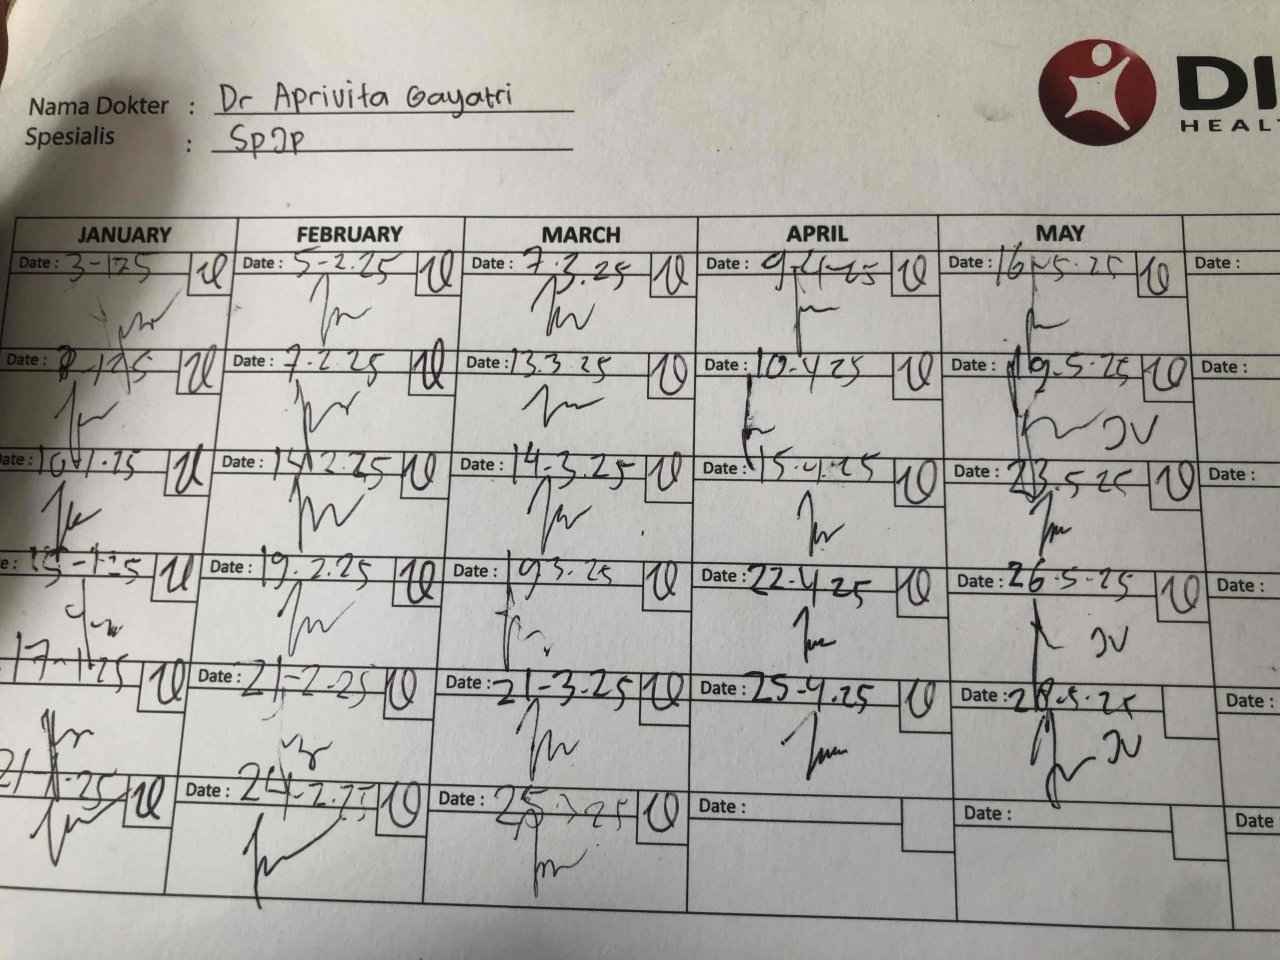 Nama Dokter : Dr Aprivita Gayatri
Spesialis : SpJp
DI
HEAL
JANUARY FEBRUARY MARCH APRIL MAY
Date : 3-1-25 Date : 5-2.25 Date : 7.3.25 Date : 9-4-25 Date : 16-5.25 Date :
Date : 8-1-25 Date : 7-2.25 Date : 13.3.25 Date : 10-4 25 Date : 19-5-25 Date :
JV
ate : 10-1-25 Date : 14 2.25 Date : 14-3.25 Date : 15.4.25 Date : 23.5 25 Date :
e : 15-1-25 Date : 19.2.25 Date : 19 3.25 Date : 22-4 25 Date : 26-5-25 Date :
JV
17-1-25 Date : 21-2-25 Date : 21-3.25 Date : 25-4.25 Date : 28-5-25 Date :
JV
21 1-25 Date : 24-2.25 Date : 25 3 25 Date : Date : Date